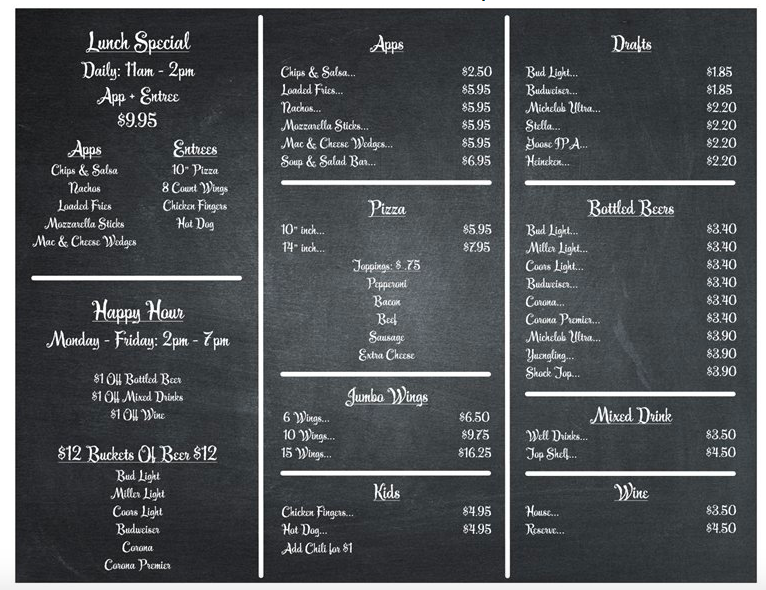 Lunch Special
Daily: 11am - 2pm
App + Entree
$9.95
Apps
Chips & Salsa
Nachos
Loaded Fries
Mozzarella Sticks
Mac & Cheese Wedges
Entrees
10" Pizza
8 Count Wings
Chicken Fingers
Hot Dog
Happy Hour
Monday - Friday: 2pm - 7pm
$1 Off Bottled Beer
$1 Off Mixed Drinks
$1 Off Wine
$12 Buckets Of Beer $12
Bud Light
Miller Light
Coors Light
Budweiser
Corona
Corona Premier
Apps
Chips & Salsa... $2.50
Loaded Fries... $5.95
Nachos... $5.95
Mozzarella Sticks... $5.95
Mac & Cheese Wedges... $5.95
Soup & Salad Bar... $6.95
Pizza
10" inch... $5.95
14" inch... $7.95
Toppings: $ .75
Pepperoni
Bacon
Beef
Sausage
Extra Cheese
Jumbo Wings
6 Wings... $6.50
10 Wings... $9.75
15 Wings... $16.25
Kids
Chicken Fingers... $4.95
Hot Dog... $4.95
Add Chili for $1
Drafts
Bud Light... $1.85
Budweiser... $1.85
Michelob Ultra... $2.20
Stella... $2.20
Goose IPA... $2.20
Heineken... $2.20
Bottled Beers
Bud Light... $3.40
Miller Light... $3.40
Coors Light... $3.40
Budweiser... $3.40
Corona... $3.40
Corona Premier... $3.40
Michelob Ultra... $3.90
Yuengling... $3.90
Shock Top... $3.90
Mixed Drink
Well Drinks... $3.50
Top Shelf... $4.50
Wine
House... $3.50
Reserve... $4.50